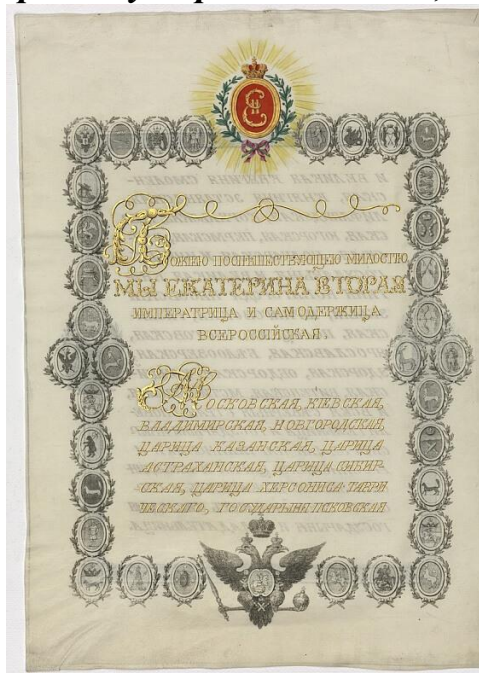 БОЖІЕЮ ПОСПѢШЕСТВУЮЩЕЮ МИЛОСТІЮ
МЫ ЕКАТЕРИНА ВТОРАЯ
ИМПЕРАТРИЦА И САМОДЕРЖИЦА
ВСЕРОССІЙСКАЯ.
МОСКОВСКАЯ, КІЕВСКАЯ,
ВЛАДИМИРСКАЯ, НОВГОРОДСКАЯ,
ЦАРИЦА КАЗАНСКАЯ, ЦАРИЦА
АСТРАХАНСКАЯ, ЦАРИЦА СИБИР-
СКАЯ, ЦАРИЦА ХЕРСОНИСА ТАВРИ
ЧЕСКАГО, ГОСУДАРЫНЯ ПСКОВСКАЯ